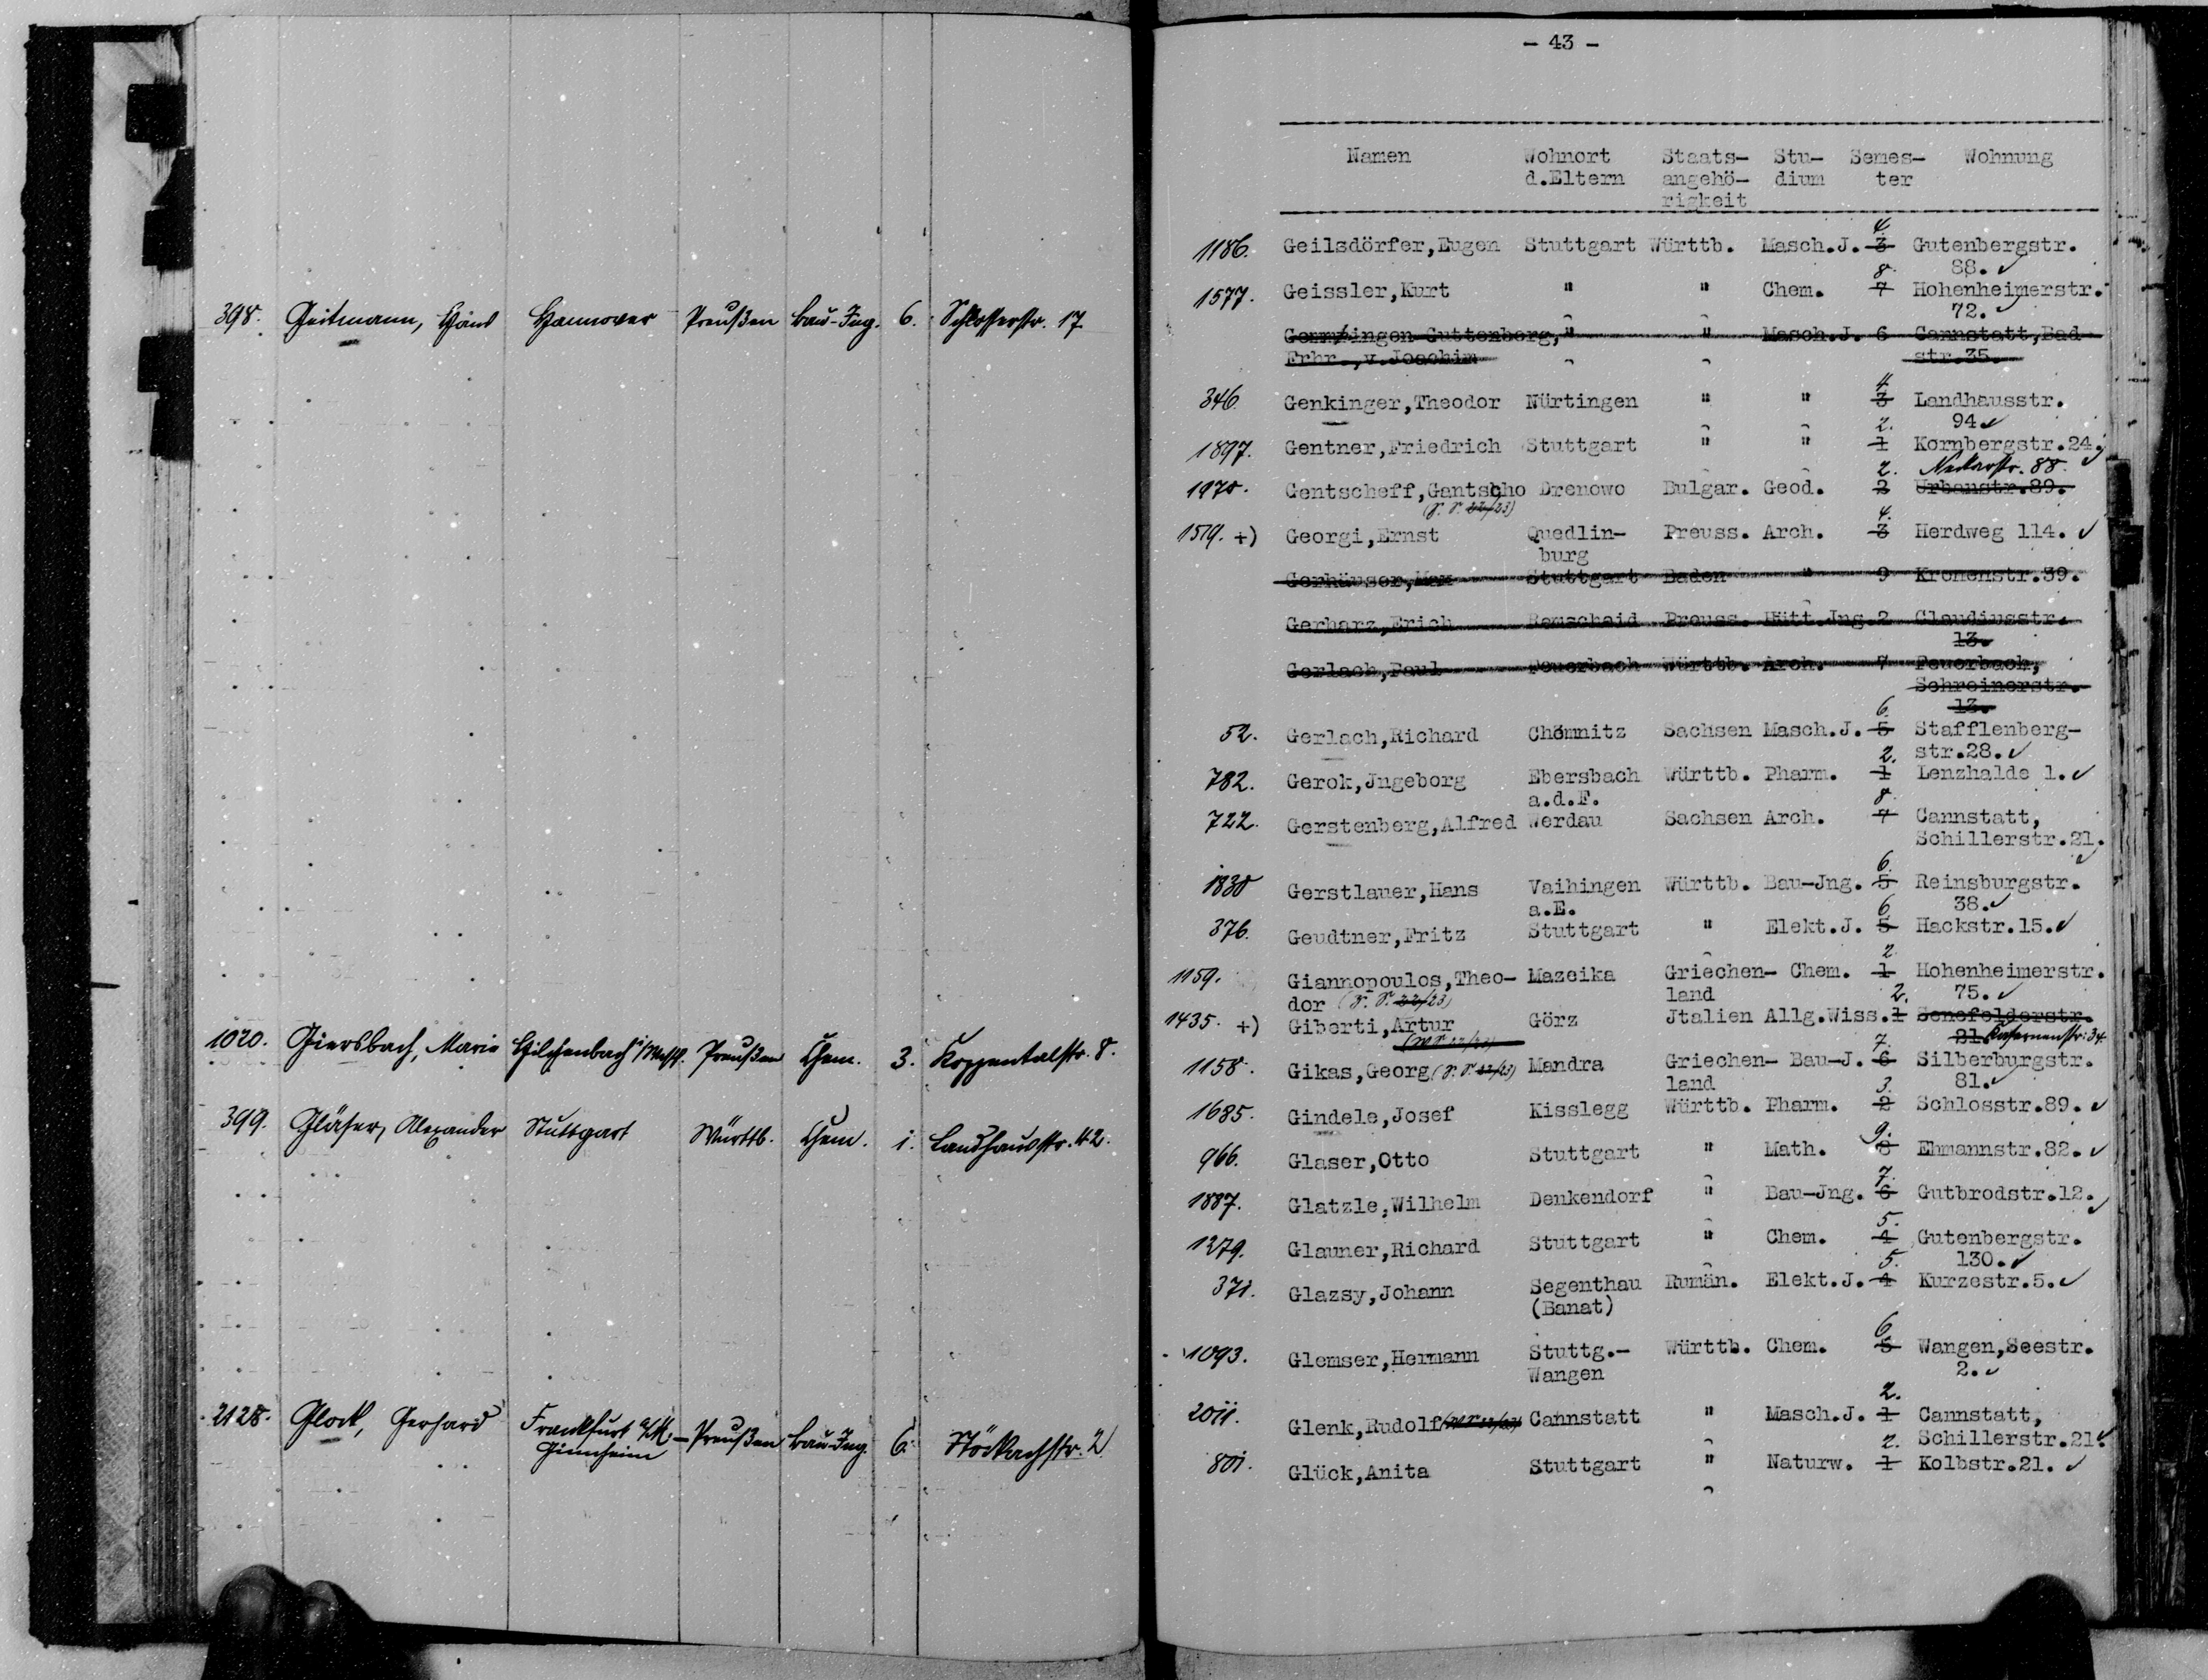 398. Geitmann, Hans Hannover Preußen Bau-Ing. 6. Schlosserstr. 17
1020. Giersbach, Marie Hilchenbach i/Westf. Preußen Chem. 3. Koppentalstr. 8.
399. Gläser, Alexander Stuttgart Württb. Chem. 1. Landhausstr. 42.
2128. Glock, Gerhard Frankfurt a/M.- Preußen Bau-Ing. 6. Stöckachstr. 2
Ginnheim
- 43 -
Namen Wohnort Staats- Stu- Semes- Wohnung
d.Eltern angehö- dium ter
rigkeit
4.
1186. Geilsdörfer,Eugen Stuttgart Württb. Masch.J. 3 Gutenbergstr.
8. 88. ✓
1577. Geissler,Kurt " " Chem. 7 Hohenheimerstr.
72. ✓
Gemmingen Guttenberg, " " Masch.J. 6 Cannstatt,Bad
Frhr.,v.Joachim str.35.
4
346 Genkinger,Theodor Nürtingen " " 3 Landhausstr.
2. 94 ✓
1897. Gentner,Friedrich Stuttgart " " 1 Kornbergstr.24. ✓
2. Neckarstr. 88.
1970. Gentscheff,Gantscho Drenowo Bulgar. Geod. 2 Urbanstr.89.
(S. S. 22/23)
4.
1519. +) Georgi,Ernst Quedlin- Preuss. Arch. 3 Herdweg 114. ✓
burg
Gerhäuser,Max Stuttgart Baden " 9 Kronenstr.39.
Gerharz,Erich Remscheid Preuss. Hütt.Jng.2 Claudiusstr.
13.
Gerlach,Paul Feuerbach Württb. Arch. 7 Feuerbach,
Schreinerstr.
6. 13.
52. Gerlach,Richard Chemnitz Sachsen Masch.J. 5 Stafflenberg-
2. str.28. ✓
782. Gerok,Jngeborg Ebersbach Württb. Pharm. 1 Lenzhalde 1. ✓
a.d.F. 8.
722. Gerstenberg,Alfred Werdau Sachsen Arch. 7 Cannstatt,
Schillerstr.21. ✓
6.
1830 Gerstlauer,Hans Vaihingen Württb. Bau-Jng. 5 Reinsburgstr.
a.E. 6 38. ✓
376. Geudtner,Fritz Stuttgart " Elekt.J. 5 Hackstr.15. ✓
2.
1159. Giannopoulos,Theo- Mazeika Griechen- Chem. 1 Hohenheimerstr.
dor (S. S. 22/23) land 2. 75. ✓
1435. +) Giberti,Artur Görz Jtalien Allg.Wiss.1 Senefelderstr.
(W S 22/23) 7. 21 Kasernenstr. 34
1158. Gikas,Georg (S. S. 22/23) Mandra Griechen- Bau-J. 6 Silberburgstr.
land 3. 81. ✓
1685. Gindele,Josef Kisslegg Württb. Pharm. 2 Schlosstr.89. ✓
9.
966. Glaser,Otto Stuttgart " Math. 8 Ehmannstr.82. ✓
7.
1887. Glatzle,Wilhelm Denkendorf " Bau-Jng. 6 Gutbrodstr.12. ✓
5.
1279. Glauner,Richard Stuttgart " Chem. 4 Gutenbergstr.
5. 130. ✓
371. Glazsy,Johann Segenthau Rumän. Elekt.J. 4 Kurzestr.5. ✓
(Banat)
6
1093. Glemser,Hermann Stuttg.- Württb. Chem. 5 Wangen,Seestr.
Wangen 2. ✓
2.
2011. Glenk,Rudolf (W S 22/23) Cannstatt " Masch.J. 1 Cannstatt,
2. Schillerstr.21. ✓
801. Glück,Anita Stuttgart " Naturw. 1 Kolbstr.21. ✓